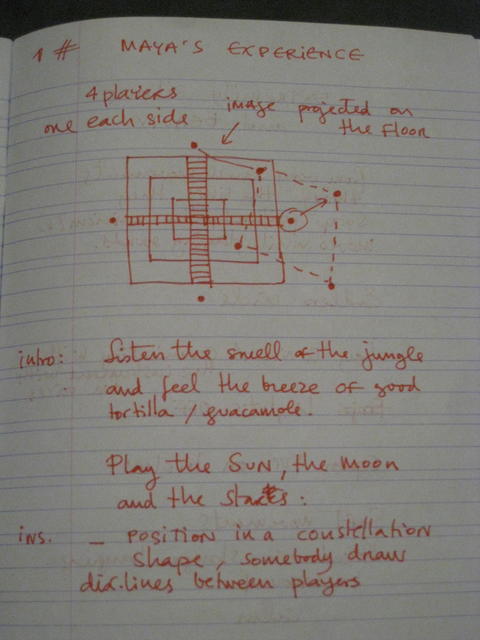 1 # MAYA'S EXPERIENCE
4 players
one each side
image projected on
the Floor
intro: Listen the smell of the jungle
and feel the breeze of good
tortilla / guacamole.
Play the SUN, the moon
and the stars:
ins. – POSITION IN A CONSTELLATION
Shape, somebody draw
lines between players